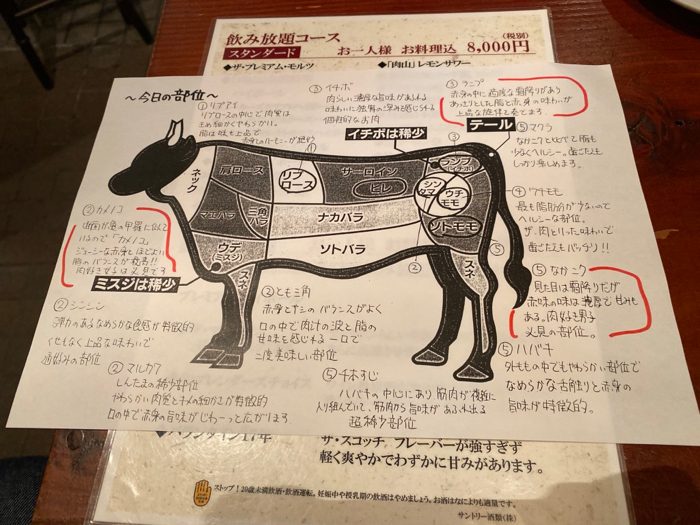 飲み放題コース
(税別)
スタンダード お一人様 お料理込 8,000円
◆ザ・プレミアム・モルツ
◆「肉山」レモンサワー
～今日の部位～
①リブアイ
リブロースの中心で肉質は
きめ細かくやわらかい。
脂は味も上品で
赤身とのハーモニーが絶妙
③イチボ
肉らしい濃厚な旨味があふれる
味わいに独自の深みを感じられる
個性的なお肉
③ランプ
赤身の中に適度な霜降りがあり
あっさりとした脂と赤身の味わいが
上品な旋律を奏でます。
イチボは稀少
テール
⑤マクラ
なかニクと比べて脂も
少なくヘルシー。歯ごたえも
しっかり楽しめます。
④ウチモモ
最も脂肪分が少ないので
ヘルシーな部位。
ザ・肉といった味わいで
歯ごたえもバッチリ!!
⑤なかニク
見た目は霜降りだが
赤味の味は濃厚で甘みも
ある。肉好き男子
必見の部位。
⑤ハバキ
外ももの中でもやわらかい部位で
なめらかな舌触りと赤身の
旨味が特徴的。
ネック
肩ロース
リブ
ロース
サーロイン
ヒレ
ランプ
(イチボ)
シン
タマ
ウチ
モモ
ソトモモ
マエバラ
三角
バラ
ナカバラ
ソトバラ
ウデ
(ミスジ)
スネ
スネ
①
②
③
④
⑤
②カメノコ
断面が亀の甲羅に似て
いるので「カメノコ」
ジューシーな赤身とほどよい
脂のバランスが最高!!
肉好き女子は必見です
ミスジは稀少
②シンシン
弾力のあるなめらかな食感が特徴的
くせもなく上品な味わいで
通好みの部位
②マルカワ
しんたまの稀少部位
やわらかい肉質とキメの細かさが特徴的
口の中で赤身の旨味がじわーっと広がります
②とも三角
赤身とサシのバランスがよく
口の中で肉汁の波と脂の
甘味を感じられる一口で
二度美味しい部位
⑤千本すじ
ハバキの中心にあり筋肉が複雑に
入り組んでいて、筋肉から旨味があふれ出る
超稀少部位
ザ・スコッチ。フレーバーが強すぎず
軽く爽やかでわずかに甘みがあります。
ストップ！20歳未満飲酒・飲酒運転。妊娠中や授乳期の飲酒はやめましょう。お酒はなによりも適量です。
サントリー酒類(株)